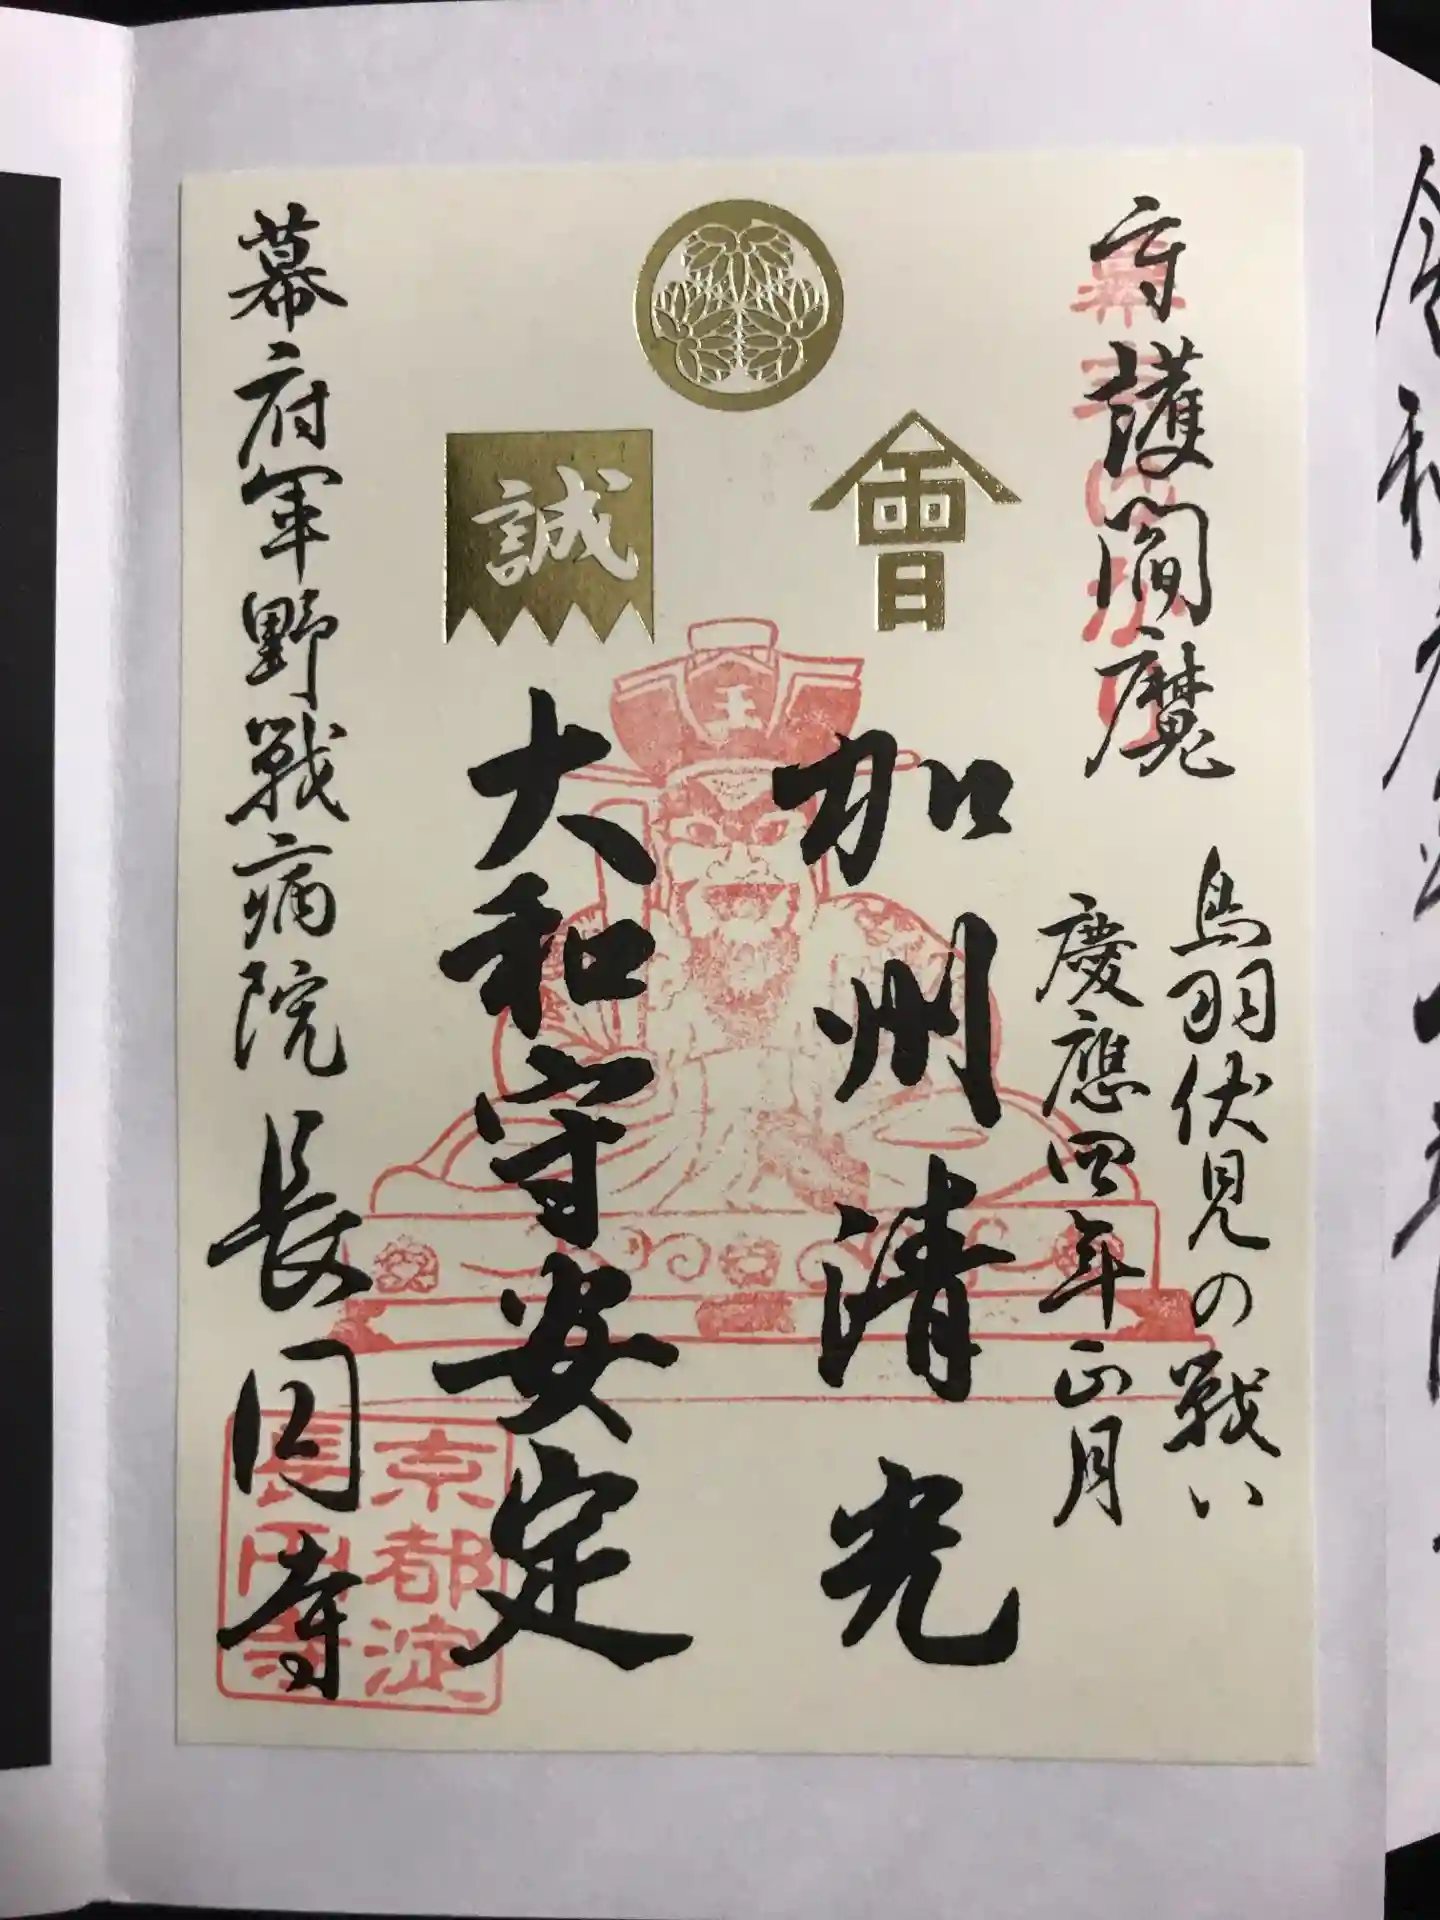 守護閻魔
鳥羽伏見の戦い
慶應四年正月
會
誠
王
加州清光
大和守安定
幕府軍野戦病院 長円寺
京都淀
長円寺